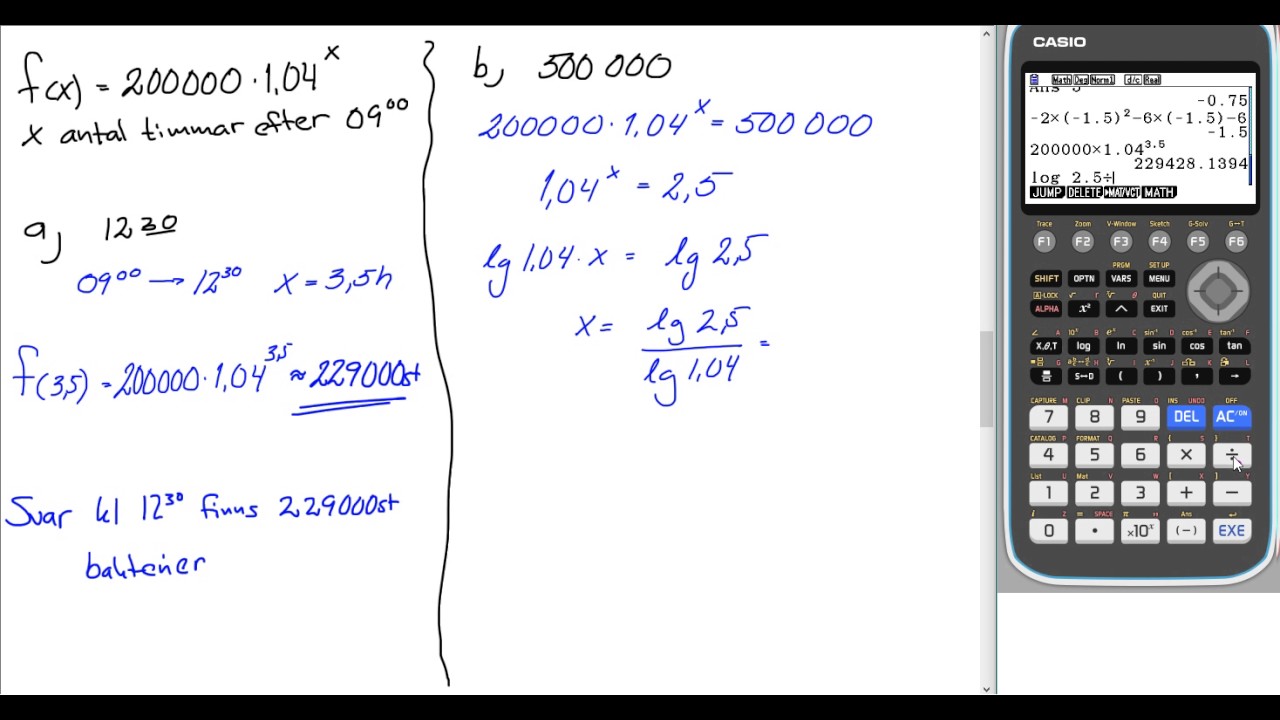 f(x) = 200000 · 1,04^x
x antal timmar efter 09⁰⁰
a, 12 30
09⁰⁰ → 12³⁰ x = 3,5h
f(3,5) = 200000 · 1,04^3,5 ≈ 229000st
Svar kl 12³⁰ finns 229000st
bakterier
b, 500 000
200000 · 1,04^x = 500 000
1,04^x = 2,5
lg 1,04 · x = lg 2,5
x = lg 2,5 / lg 1,04 =
CASIO
Math Deg Norm1 d/c Real
-0.75
-2×(-1.5)²-6×(-1.5)-6
-1.5
200000×1.04^3.5
229428.1394
log 2.5÷
JUMP DELETE ►MAT/VCT MATH
Trace Zoom V-Window Sketch G-Solv G↔T
F1 F2 F3 F4 F5 F6
PRGM SET UP
SHIFT OPTN VARS MENU
A-LOCK QUIT
ALPHA x² ^ EXIT
X,θ,T log ln sin cos tan
S↔D ( ) , →
CAPTURE CLIP PASTE INS UNDO OFF
7 8 9 DEL AC/ON
CATALOG FORMAT
4 5 6 × ÷
List Mat
1 2 3 + −
SPACE π Ans
0 · ×10^x (−) EXE